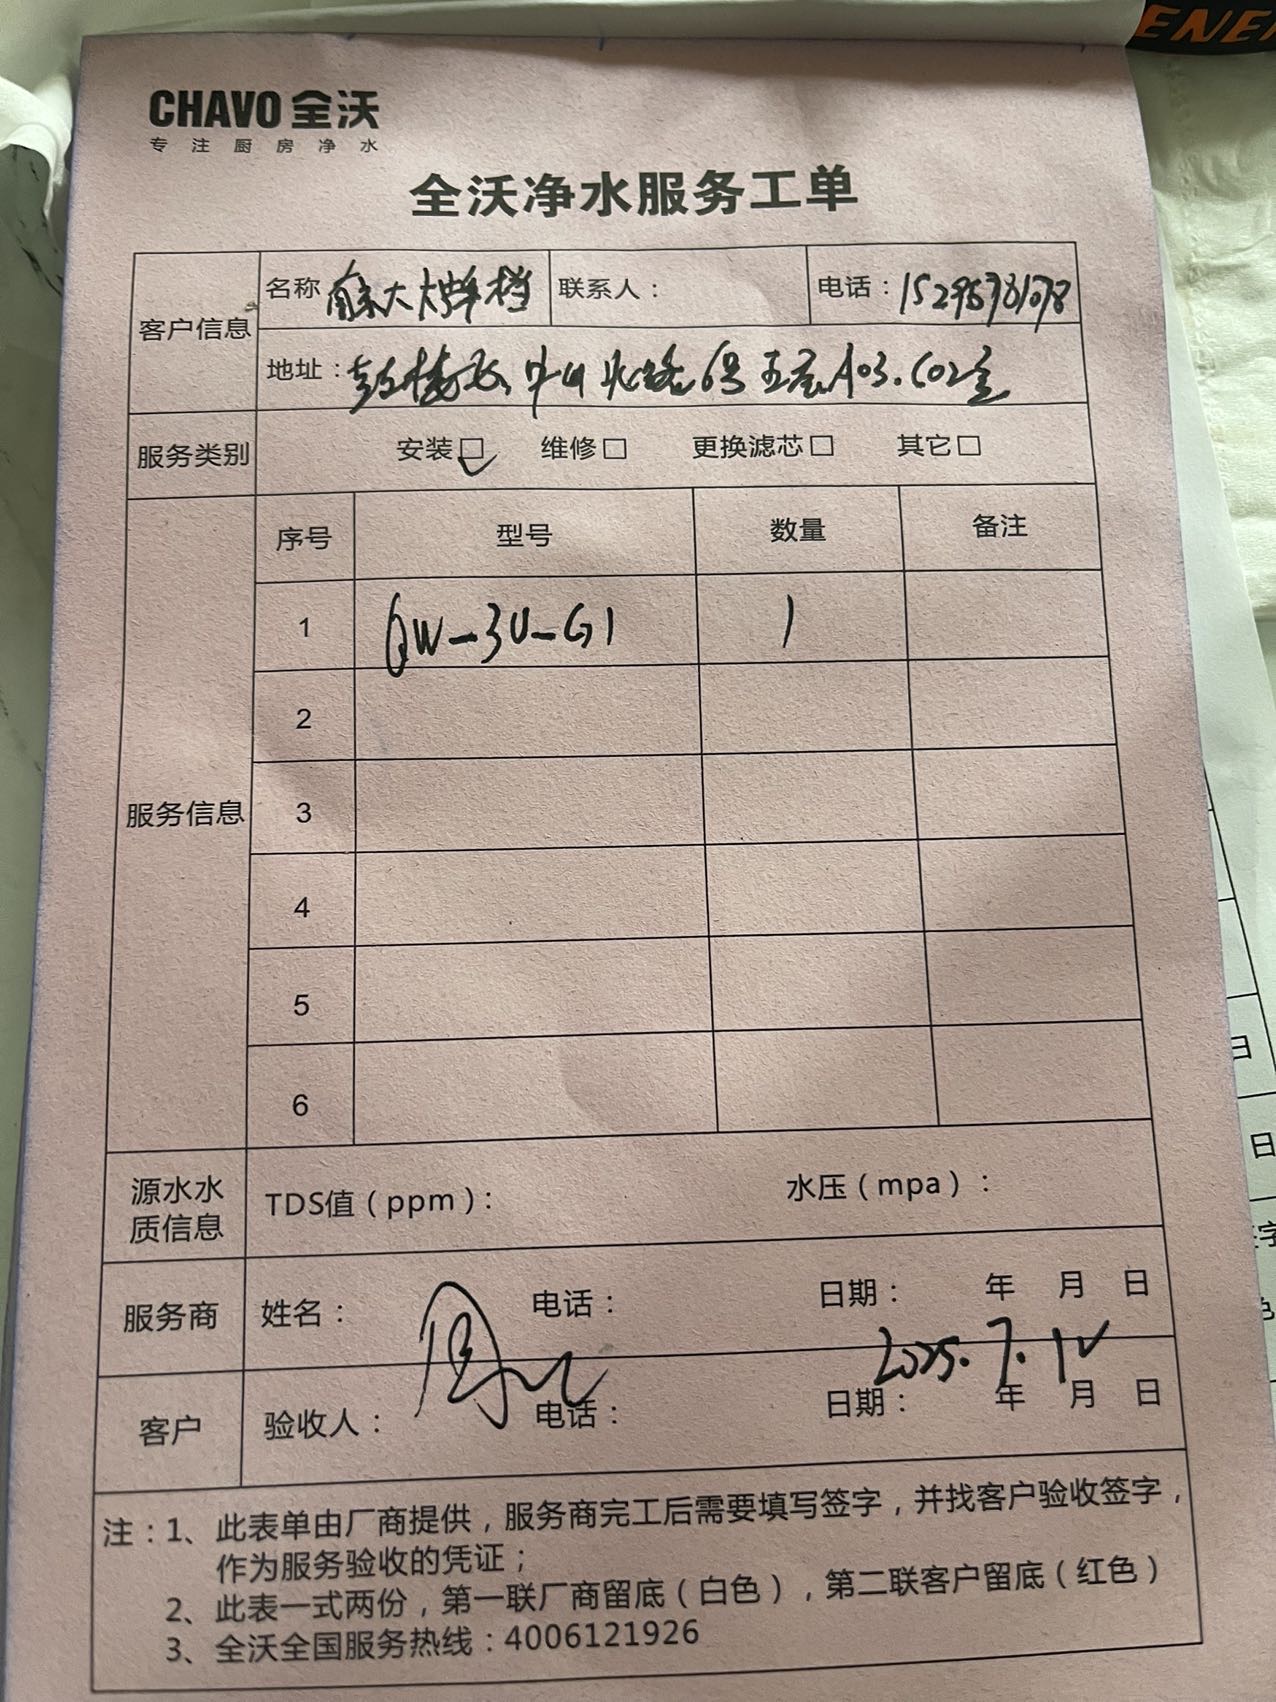 ENE
CHAVO 全沃
专注厨房净水
全沃净水服务工单
客户信息
名称 南京大牌档
联系人：
电话：15295781078
地址：鼓楼区中山北路6号五层 603.602室
服务类别
安装☑ 维修□ 更换滤芯□ 其它□
服务信息
序号 型号 数量 备注
1 QW-3U-G1 1
2
3
4
5
6
源水水质信息
TDS值（ppm）： 水压（mpa）：
服务商 姓名： 电话： 日期： 年 月 日
2025.7.12
客户 验收人： 电话： 日期： 年 月 日
注：1、此表单由厂商提供，服务商完工后需要填写签字，并找客户验收签字，
作为服务验收的凭证；
2、此表一式两份，第一联厂商留底（白色），第二联客户留底（红色）
3、全沃全国服务热线：4006121926
日
日